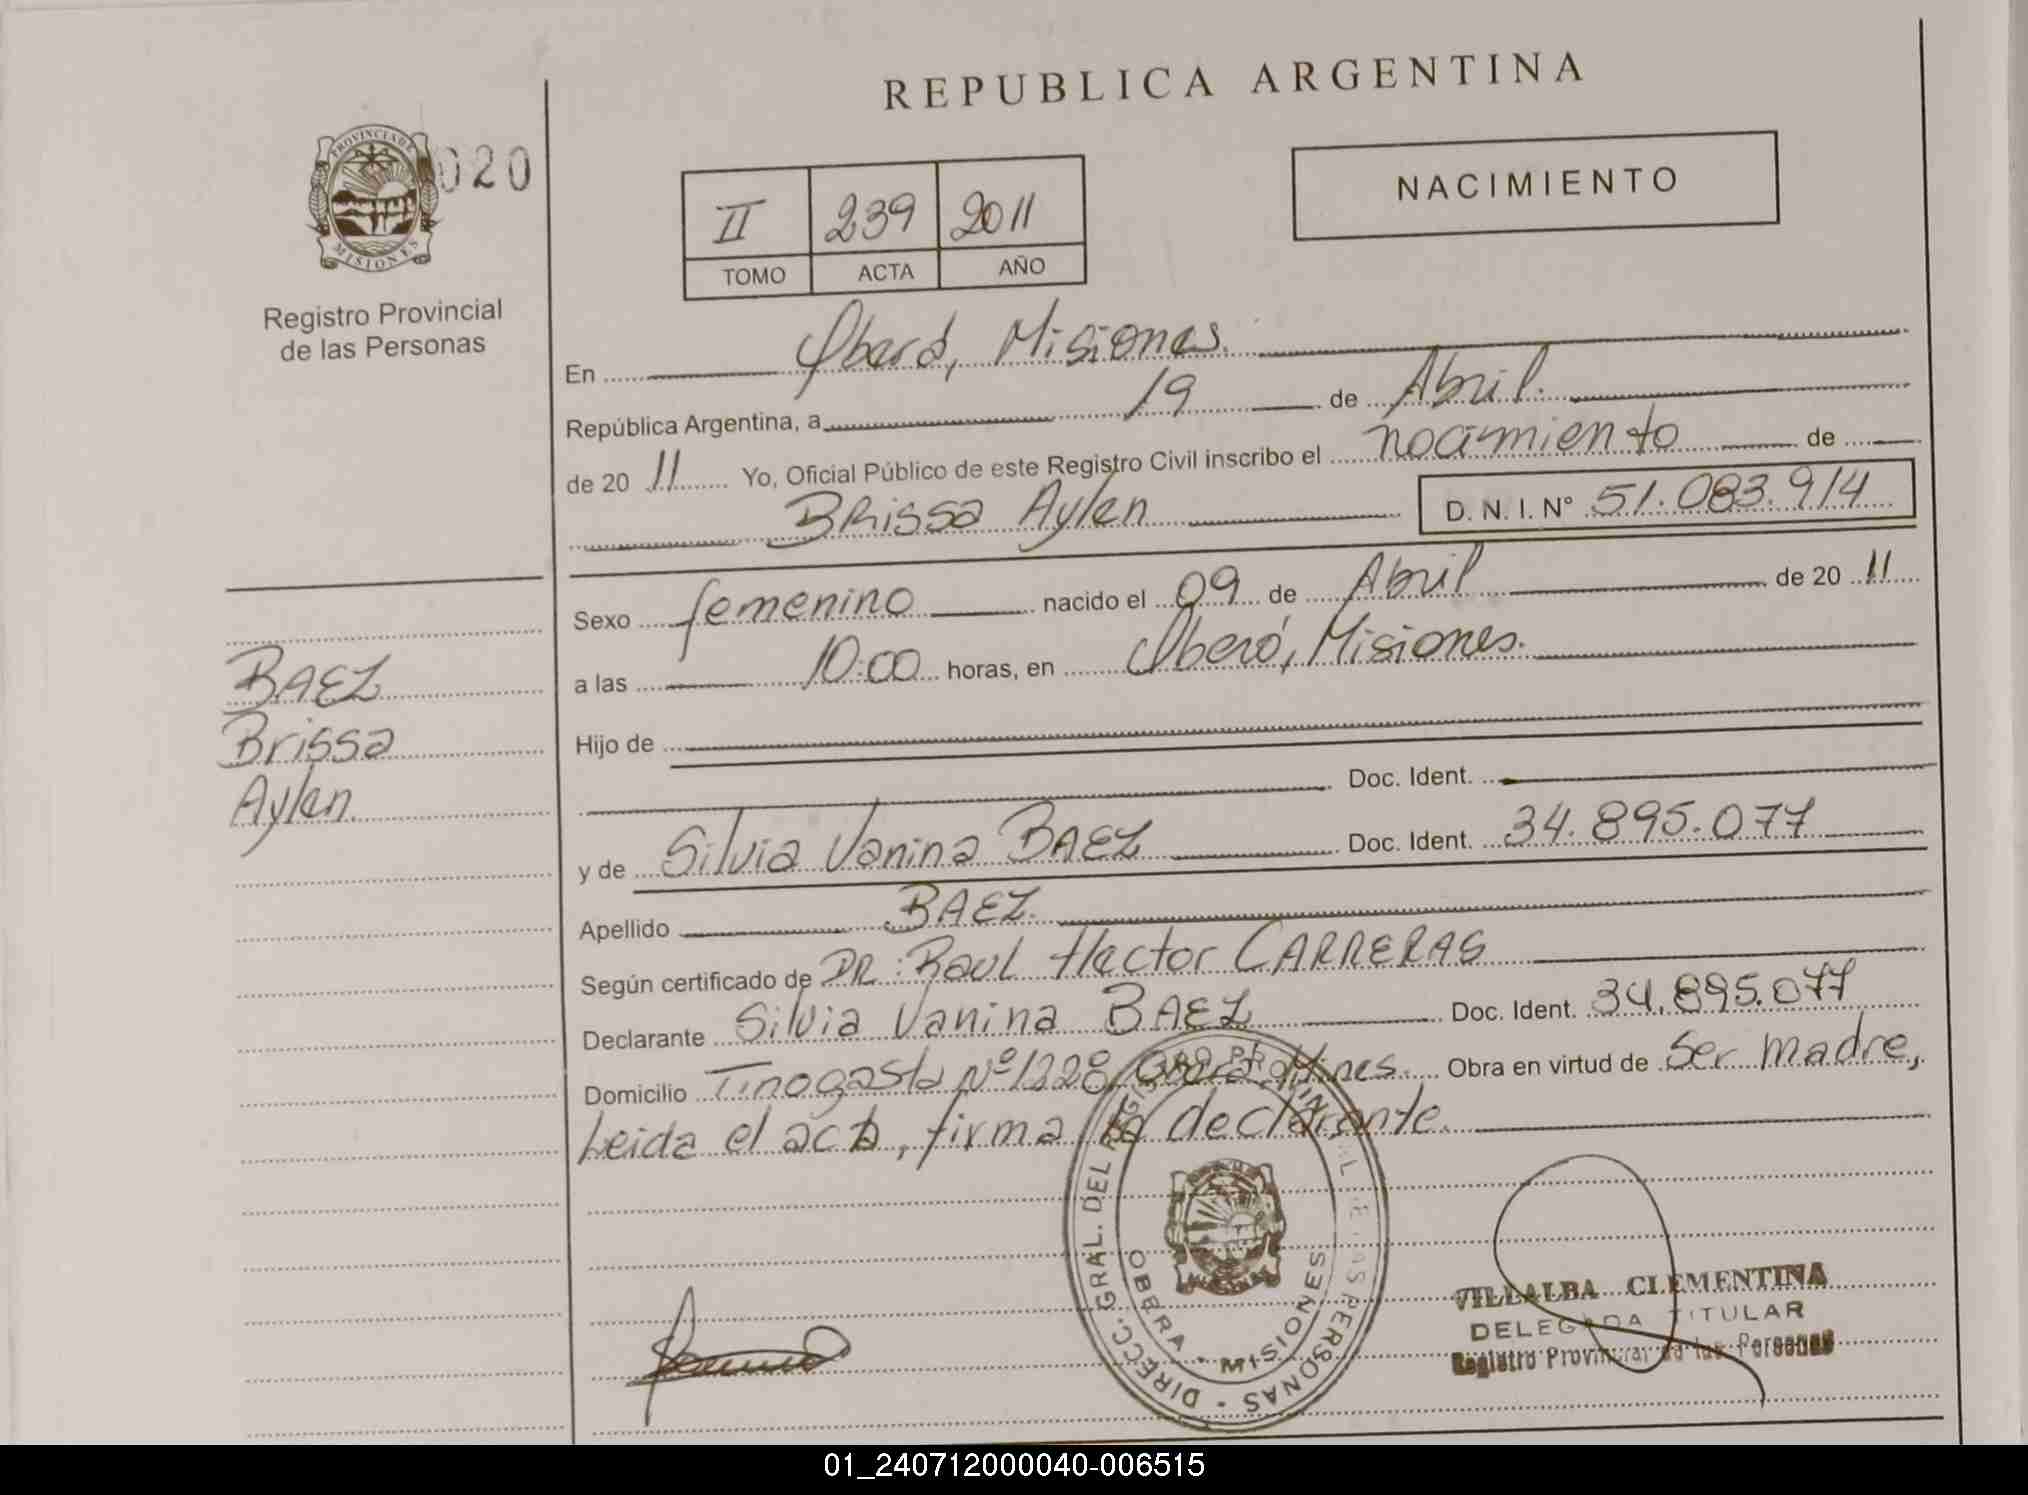 REPUBLICA ARGENTINA
PROVINCIA DE MISIONES
020
Registro Provincial
de las Personas
II 239 2011
TOMO ACTA AÑO
NACIMIENTO
En Oberá, Misiones.
República Argentina, a 19 de Abril.
de 20 11 Yo, Oficial Público de este Registro Civil inscribo el nacimiento de
Brissa Aylen D. N. I. N° 51.083.914
Sexo femenino nacido el 09 de Abril de 20 11
a las 10:00 horas, en Oberá, Misiones.
Hijo de
Doc. Ident.
y de Silvia Vanina BAEZ Doc. Ident. 34.895.077
Apellido BAEZ.
Según certificado de DR: Raul Hector CARRERAS
Declarante Silvia Vanina BAEZ Doc. Ident. 34.895.077
Domicilio Tinogasta Nº 1228, Oberá, Mnes. Obra en virtud de Ser madre,
Leida el acta, firma la declarante.
BAEZ
Brissa
Aylen.
DIRECC. GRAL. DEL REGISTRO PROVINCIAL DE LAS PERSONAS
OBERA - MISIONES
VILLALBA CLEMENTINA
DELEGADA TITULAR
Registro Provincial de las Personas
01_240712000040-006515